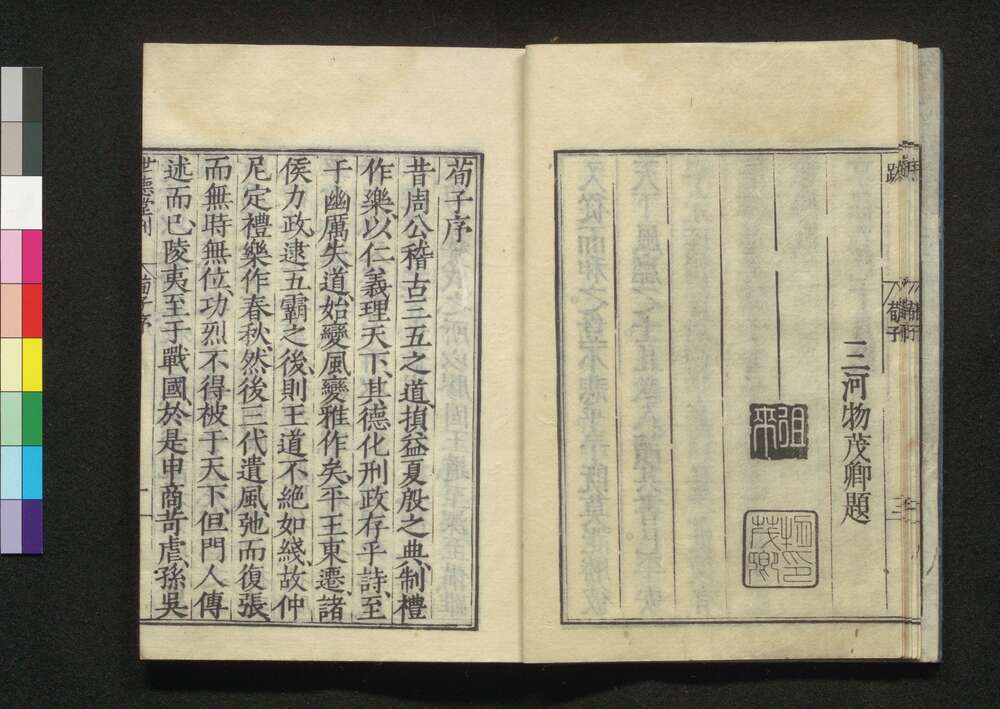 三河物茂卿題
荀子
三
荀子序
昔周公稽古三五之道損益夏殷之典制禮
作樂以仁義理天下其德化刑政存乎詩至
于幽厲失道始變風變雅作矣平王東遷諸
侯力政逮五霸之後則王道不絕如綫故仲
尼定禮樂作春秋然後三代遺風弛而復張
而無時無位功烈不得被于天下但門人傳
述而已陵夷至于戰國於是申商苛虐孫吳
世德堂刊
荀子序
一